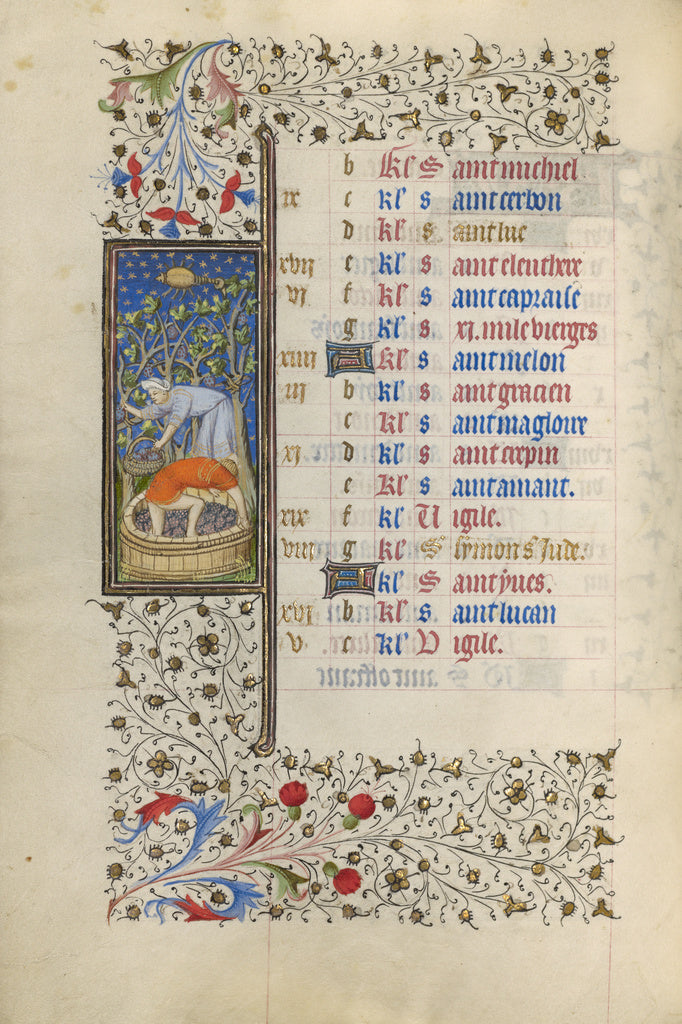 b kl' S aint michiel
ix c kl' s aint cerbon
d kl' s aint luc
xvij e kl' s aint eleuthere
vj f kl' s aint capraise
g kl' s xj. mile vierges
xiiij A kl' s aint melon
iij b kl' s aint gracien
c kl' s aint magloire
xj d kl' s aint crepin
e kl' s aint amant.
xix f kl' U igile.
viij g kl' S symon s Jude.
A kl' S aint yues.
xvj b kl' s aint lucan
v c kl' V igile.